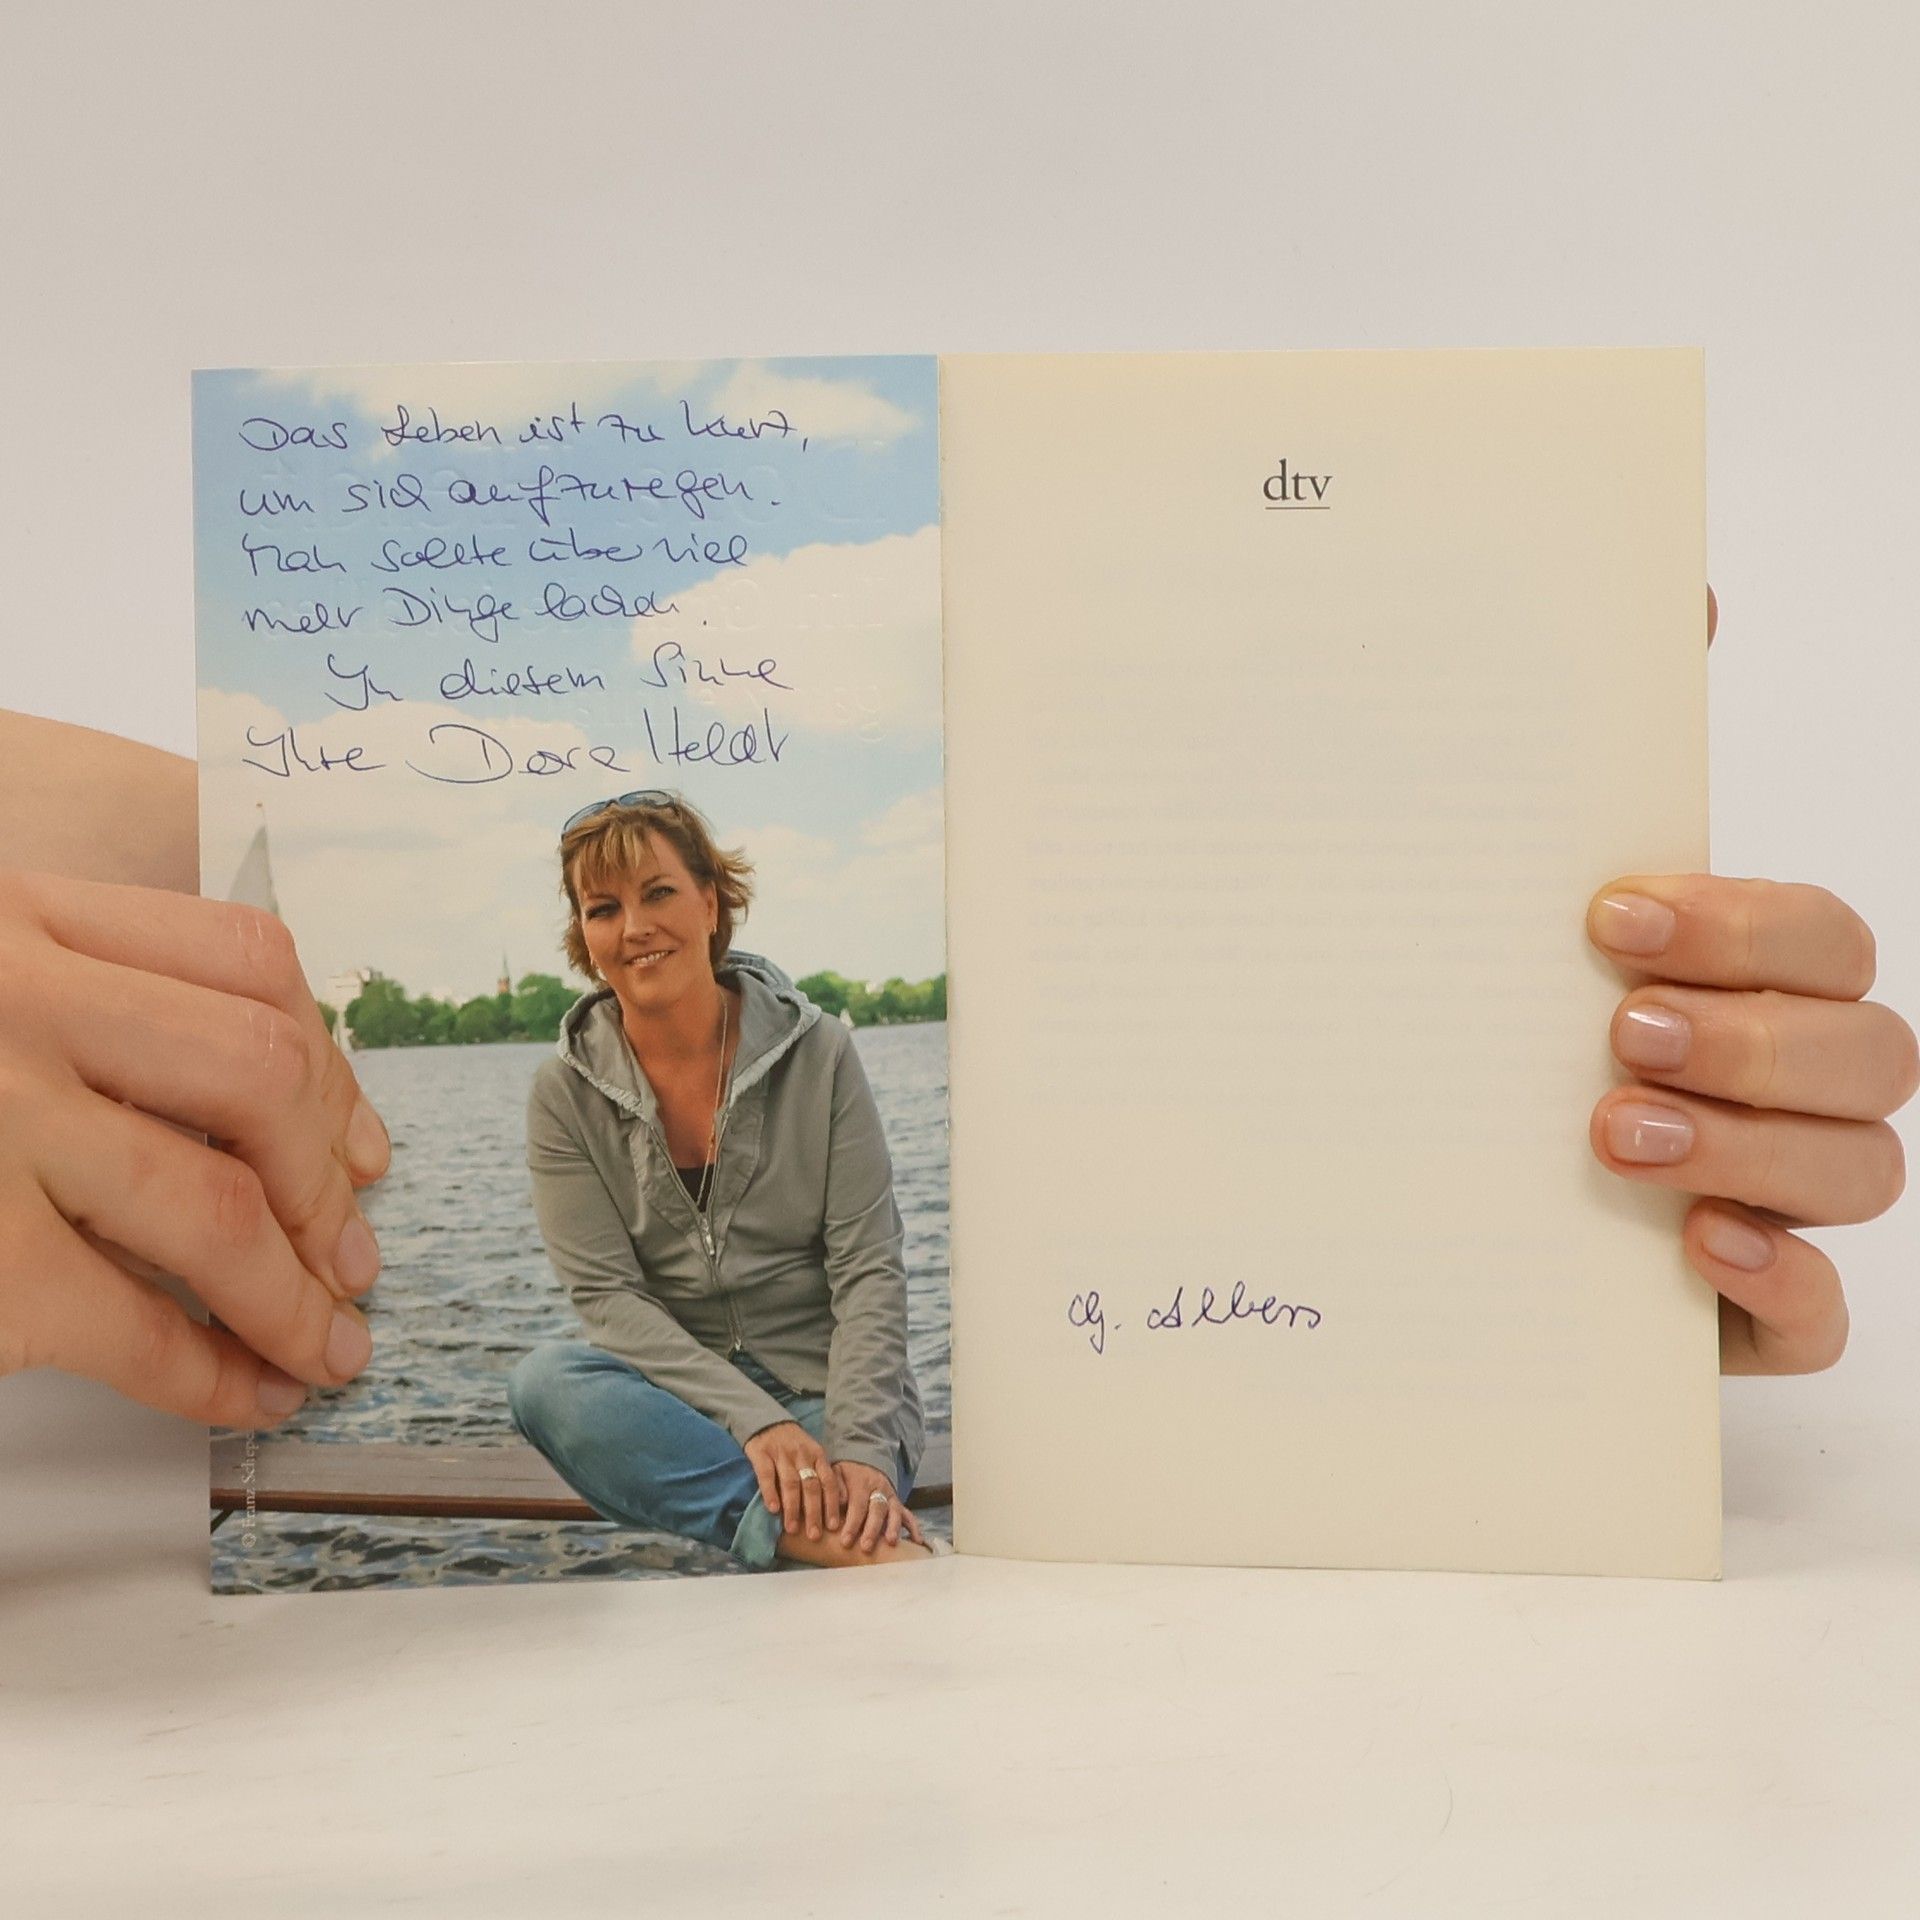 Das Leben ist zu kurz,
um sich aufzuregen.
Man sollte über viel
mehr Dinge lachen.
In diesem Sinne
Ihre Dora Heldt
© Franz Schepe
dtv
G. Albers